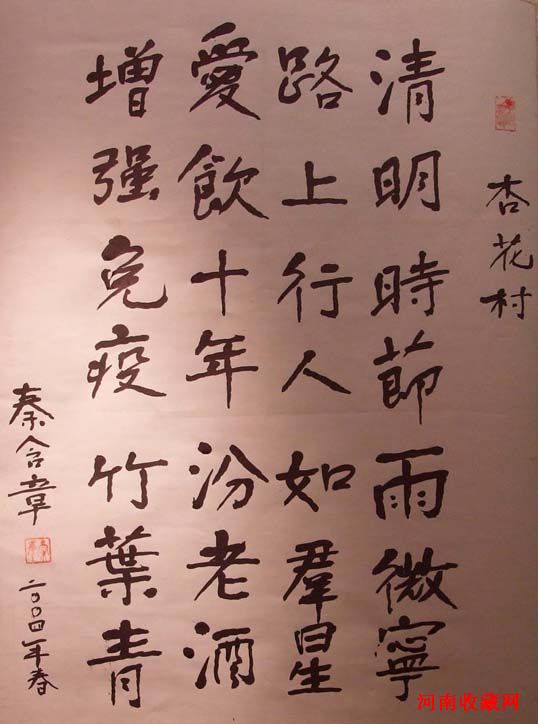 杏花村
清明時節雨微寧
路上行人如羣星
愛飲十年汾老酒
增强免疫竹葉青
秦含章
二〇〇四年春
河南收藏网